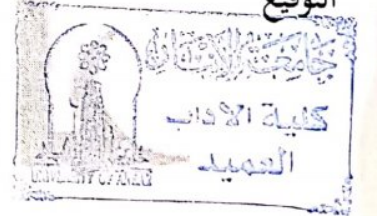 التوقيع
جامعة الانبار
كلية الاداب
العميد
UNIVERSITY OF ANBAR